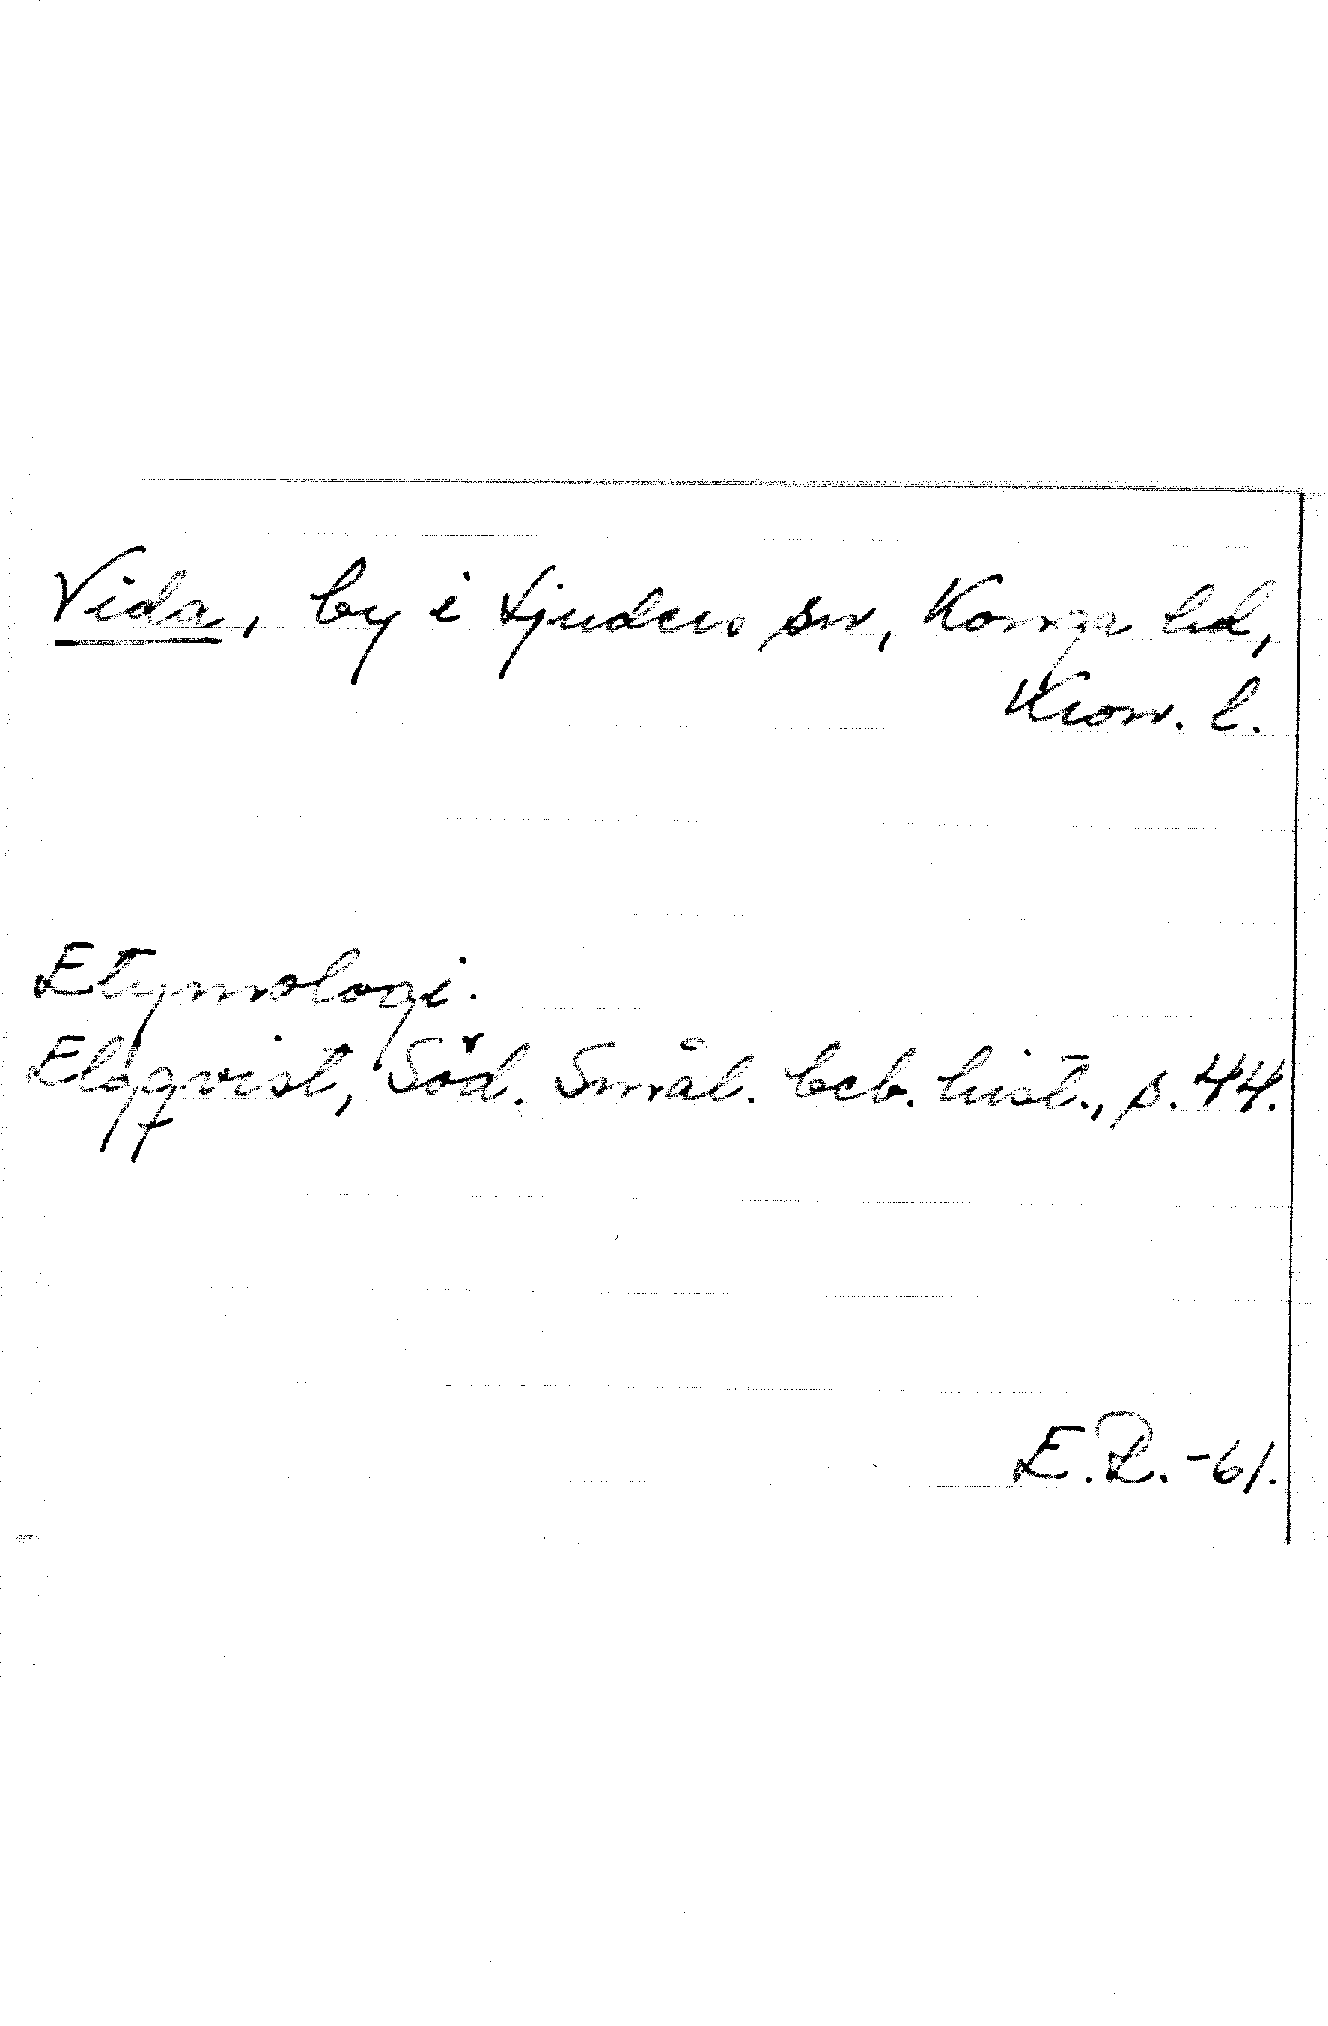 Vida, by i Ljuders sn, Konga hd,
Kron. l.
Etymologi.
Elgqvist, Söd. Smål. beb. hist., s. 44.
E. R. -61.